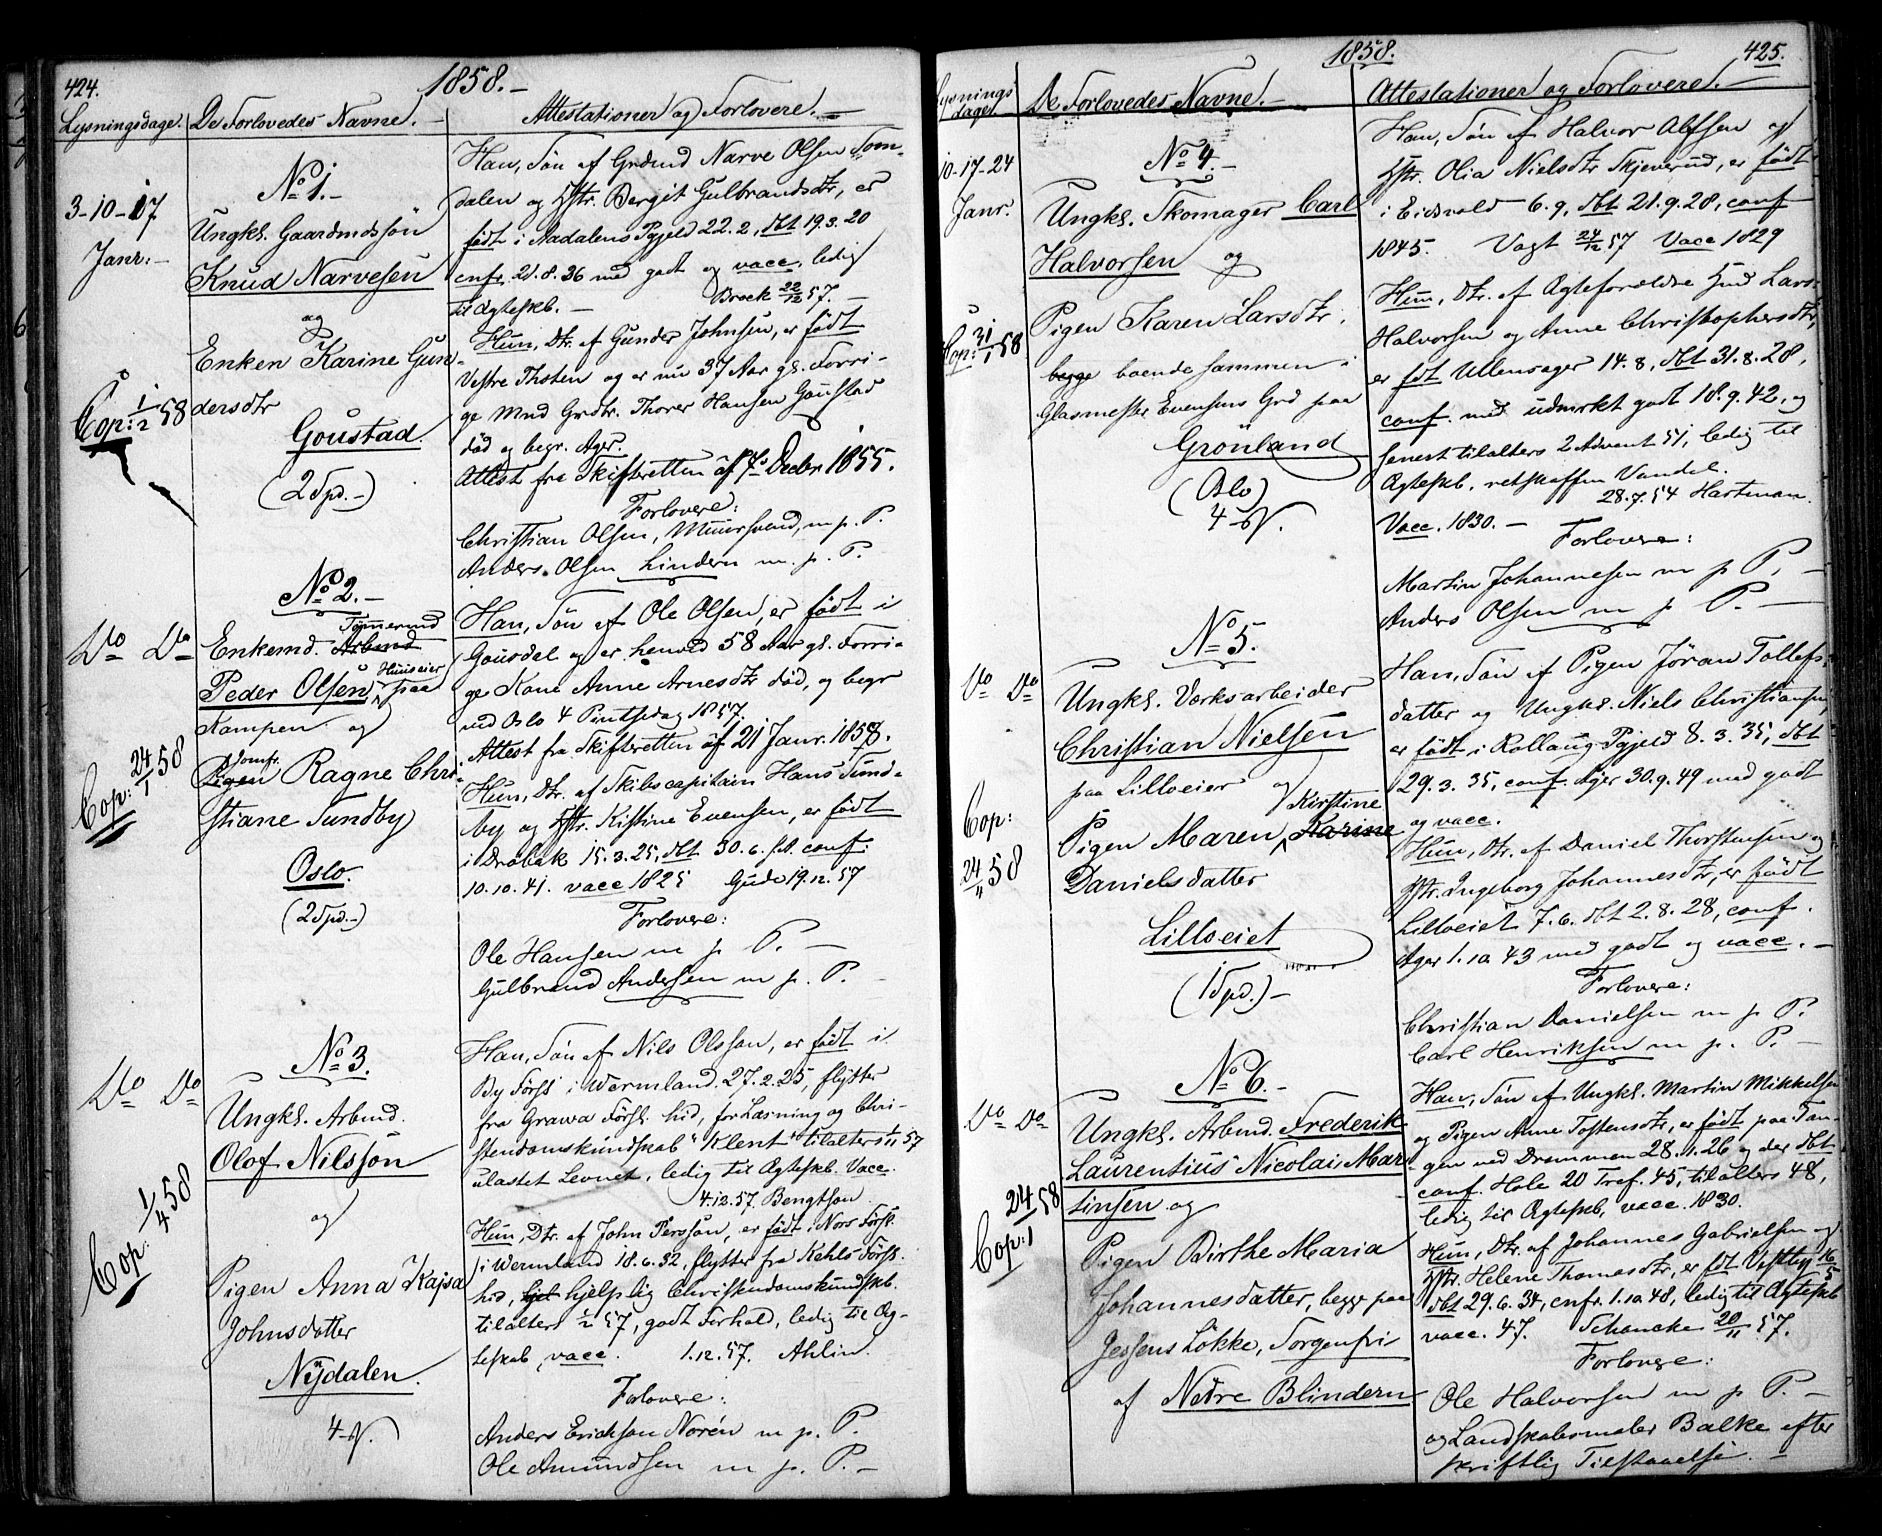 424.
1858.-
Lysningsdage. De Forlovedes Navne.- Attestationer og Forlovere.-
3-10-17
Janr.-
Cop: 1/2 58
No 1.-
Ungkl. Gaardmdssön
Knud Narvesen
og
Enken Karine Gun-
dersdtr
Goustad.
(2 Spd.-)
Han, Sön af Grdmd Narve Olsen Som-
dalen og Hstr. Berget Gulbrandsdtr, er
født i Aadalens Pgjeld 22.2, dbt 19.3.20
cnf. 21.8.36 med godt og vacc. ledig
til Ægteskb.- Brock 22/12 57.-
Hun, Dtr. af Gunder Johnsen, er født
Vestre Thoten og er nu 37 Aar gl. Forri-
ge Mnd Grdtr. Thorer Hansen Goustad
död og begr. Ager.
Attest fra Skifteretten af 7de Decbr 1855.
Forlovere:
Christian Olsen, Muursvend, m. p. P.
Anders Olsen Lindern m. p. P.
Do Do
Cop: 24/1 58
No 2.-
Tömmermd
Enkemd. Arbmd
Peder Olsen, Huuseier paa
Kampen og
Jomfr.
Pigen Ragne Chri-
stiane Sundby
Oslo.
(2 Spd.-)
Han, Sön af Ole Olsen, er födt i
Gousdal og er henved 58 Aar gl. Forri-
ge Kone Anne Arnesdtr död, og begr
ved Oslo 4 Pintsedag 1857.
Attest fra Skifteretten af 21 Janr. 1858.
Hun, Dtr. af Skibscapitain Hans Sund-
by og Hstr. Kistine Evensen, er födt
i Dröbak 15.3.25, dbt 30.6. s.A. conf.
10.10.41. vacc 1825 Gude 19.12.57
Forlovere:
Ole Hansen m p. P.-
Gulbrand Andersen m p. P.-
Do Do
Cop: 1/4 58
No 3.
Ungkl. Arbmd.
Olof Nilsson
og
Pigen Anna Kajsa
Johnsdotter
Nydalen.
4 V.
Han, Sön af Nils Olsson, er födt i
By Förs: i Wermland. 27.2.25, flytter
fra Grawa Förs: hid, for Læsning og Chri-
stendomskundskab "Klent" tilalters 1/11 57
ulastet Levnet, ledig til Ægteskb. Vacc.
4.12.57. Bengtson.
Hun, Dtr. af John Persson, er födt i Nors Förs:
i Wermland 18.6.32, flytter fra Kehls Förs:
hid, hjelplig Christendomskundskb.
tilalters 1/2 57, godt Forhold, ledig til Æg-
teskab, vacc. 1.12.57. Ahlin.
Forlovere:
Anders Erickson Norén m p. P.
Ole Amundsen m p. P.-
1858.
425.
Lysnings dage. De Forlovedes Navne.- Attestationer og Forlovere.-
10-17-24
Janr.
Cop: 31/1 58
No 4.-
Ungkl. Skomager Carl
Halvorsen og
Pigen Karen Larsdtr.
begge boende sammen i
Glasmester Evensens Grd paa
Grönland
(Oslo)
4 V.
Han, Sön af Halvor Alfsen og
Hstr. Olia Nielsdtr Skjeverud, er födt
i Eidsvold 6.9, dbt 21.9.28, conf
1845. Vogt 24/12 57 Vacc 1829
Hun, Dtr. af Ægteforældre Hmd Lars
Halvorsen og Anne Christophersdtr,
er fdt Ullensager 14.8, dbt 31.8.28,
conf. med udmrkt godt 18.9.42, og
senest tilalters 2 Advent 51, ledig til
Ægteskb. retskaffen Vandel.
28.7.54 Hartman.
Vacc. 1830.-
Forlovere:
Martin Johannesen m p P.-
Anders Olsen m p. P.-
Do Do
Cop:
24/4 58
No 5.
Ungkl. Værksarbeider
Christian Nielsen
paa Lilloeier og
Kirstine
Pigen Maren Karine
Danielsdatter
Lilloeiet
(1 Spd.)-
Han, Sön af Pigen Jöran Tollefs-
datter og Ungkl. Niels Christiansen
er födt i Rollaug Pgjeld 8.3.35, dbt
29.3.35, conf. Ager 30.9.49 med godt
og vacc.
Hun, Dtr. af Daniel Thorstensen og
Hstr. Ingeborg Johannesdtr, er födt
Lilloeiet 7.6. dbt 2.8.28, conf.
Ager 1.10.43 med godt og vacc.-
Forlovere:
Christian Danielsen m p P.
Carl Henriksen m p. P.-
Do Do
24/1 58
Cop:
No 6.-
Ungkl. Arbmd. Frederik
Laurentius Nicolai Mar-
tinsen og
Pigen Birthe Maria
Johannesdatter, begge paa
Jessens Lökke, Sorgenfri
af Nedre Blindern
Han, Sön af Ungkl. Martin Mikkelsen
og Pigen Anne Tostensdtr, er födt paa Tan-
gen ved Drammen 28.1.26 og der dbt
conf. Hole 20 Tref. 45, tilalters 48,
ledig til Ægteskb, vacc. 1830.
Hun, Dtr. af Johannes Gabrielsen og
Hstr. Helene Thomasdtr, er fdt Vestby 16/5
dbt 29.6.34, cnf. 1.10.48, ledig til Ægteskb
vacc. 47. Schancke 20/11 57.
Forlovere:
Ole Halvorsen m p P.-
og Landskabsmaler Balke efter
skriftlig Tilstaaelse.-